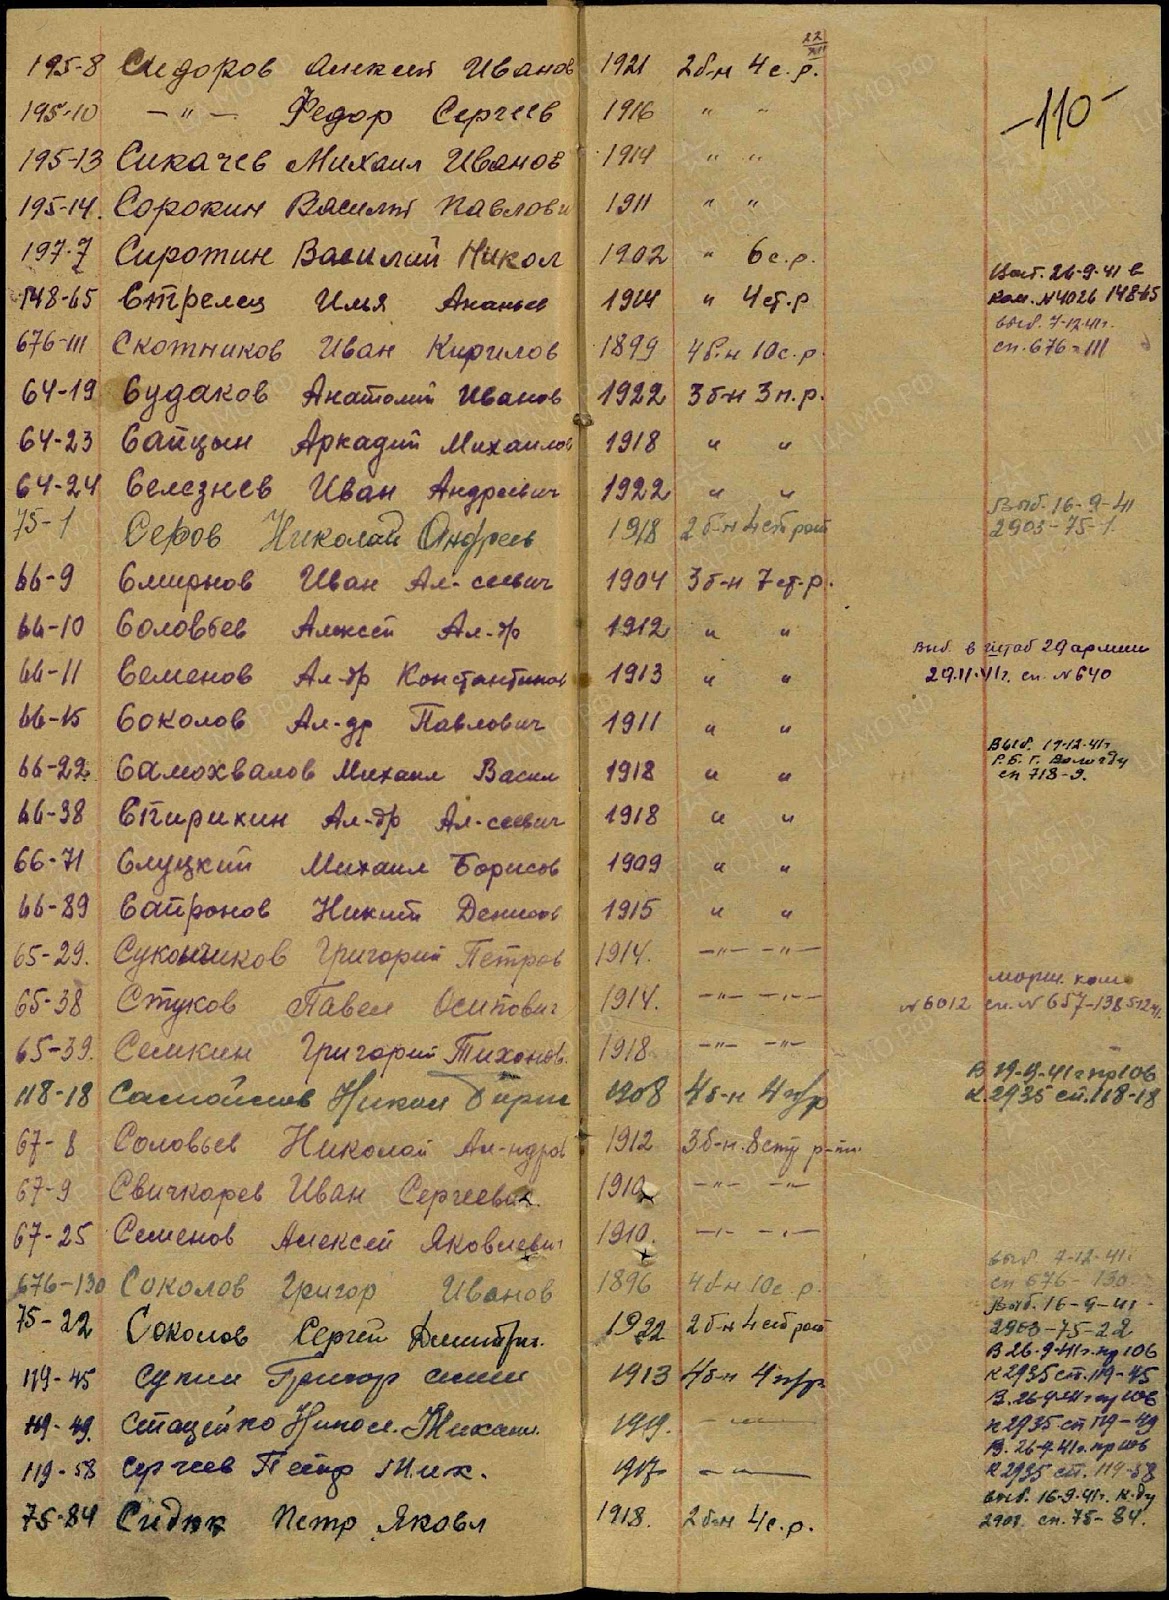 22
195-8 Сидоров Алексей Иванов 1921 2б-н 4с.р.
-110-
195-10 —"— Федор Сергеев 1916 " "
195-13 Сикачев Михаил Иванов 1914 " "
195-14. Сорокин Василий Павлови 1911 " "
197-7 Сиротин Василий Никол 1902 " 6с.р.
148-65 Стрелец Илья Ананьев 1914 " 4ст.р Выб. 26-9-41 в
ком. №4026 148-65
676-111 Скотников Иван Кирилов 1899 4б-н 10с.р. выб. 7-12-41г.
сп. 676-111
64-19 Судаков Анатолий Иванов 1922 3б-н 3п.р.
64-23 Сайцын Аркадий Михайлов 1918 " "
64-24 Селезнев Иван Андреевич 1922 " "
75-1 Серов Николай Андреев 1918 2б-н 4стр рот Выб. 16-9-41
2903-75-1.
66-9 Смирнов Иван Ал-сеевич 1904 3б-н 7ст-р.
66-10 Соловьев Алексей Ал-др 1912 " "
66-11 Семенов Ал-др Константинов 1913 " " Выб. в штаб 29 армии
29.11.41г. сп. №640
66-15 Соколов Ал-др Павлович 1911 " "
66-22 Самохвалов Михаил Васил 1918 " " Выб. 17-12-41г
Р.Б. г. Вологду
сп 718-9.
66-38 Спирихин Ал-др Ал-сеевич 1918 " "
66-71 Слуцкий Михаил Борисов 1909 " "
66-89 Сапронов Никит Денисов 1915 " "
65-29. Сукончиков Григорий Петров 1914. —"— —"—
65-38 Стуков Павел Осипович 1914. —"— —"— марш. ком
№6012 сп. №657-138 512 41.
65-39. Семкин Григорий Тихонов. 1918 —"— —"—
118-18 Самойлов Никол 1908 4б-н 4 В 19-9-41г пр106
К.2935 сп.118-18
67-8 Соловьев Николай Ал-ндров 1912 3б-н. 8стр р-ты.
67-9 Свичкарев Иван Сергеевич. 1910 —"— —"—
67-25 Семенов Алексей Яковлевич 1910. —"— —"—
676-130 Соколов Григор Иванов 1896 4б-н 10с.р. выб. 7-12-41.
сп 676-130
75-22 Соколов Сергей Дмитри. 1922 2б-н 4стр рот Выб. 16-9-41-
2903-75-22
119-45 Григор 1913 4б-н 4 В 26-9-41г. пр 106
К 2935 сп. 119-45
119-49. Стацейко Никол. Михаил. 1919. — — В. 26-9-41г пр 106
К 2935 сп 119-49
119-58 Сергеев Петр Мих. 1917 — — В. 26-9-41г. пр 106
К 2935 сп. 119-58
75-84 Сидюк Петр Яковл 1918. 2б-н 4с.р. выб. 16-9-41г. к-ду
2903. сп. 75-84.